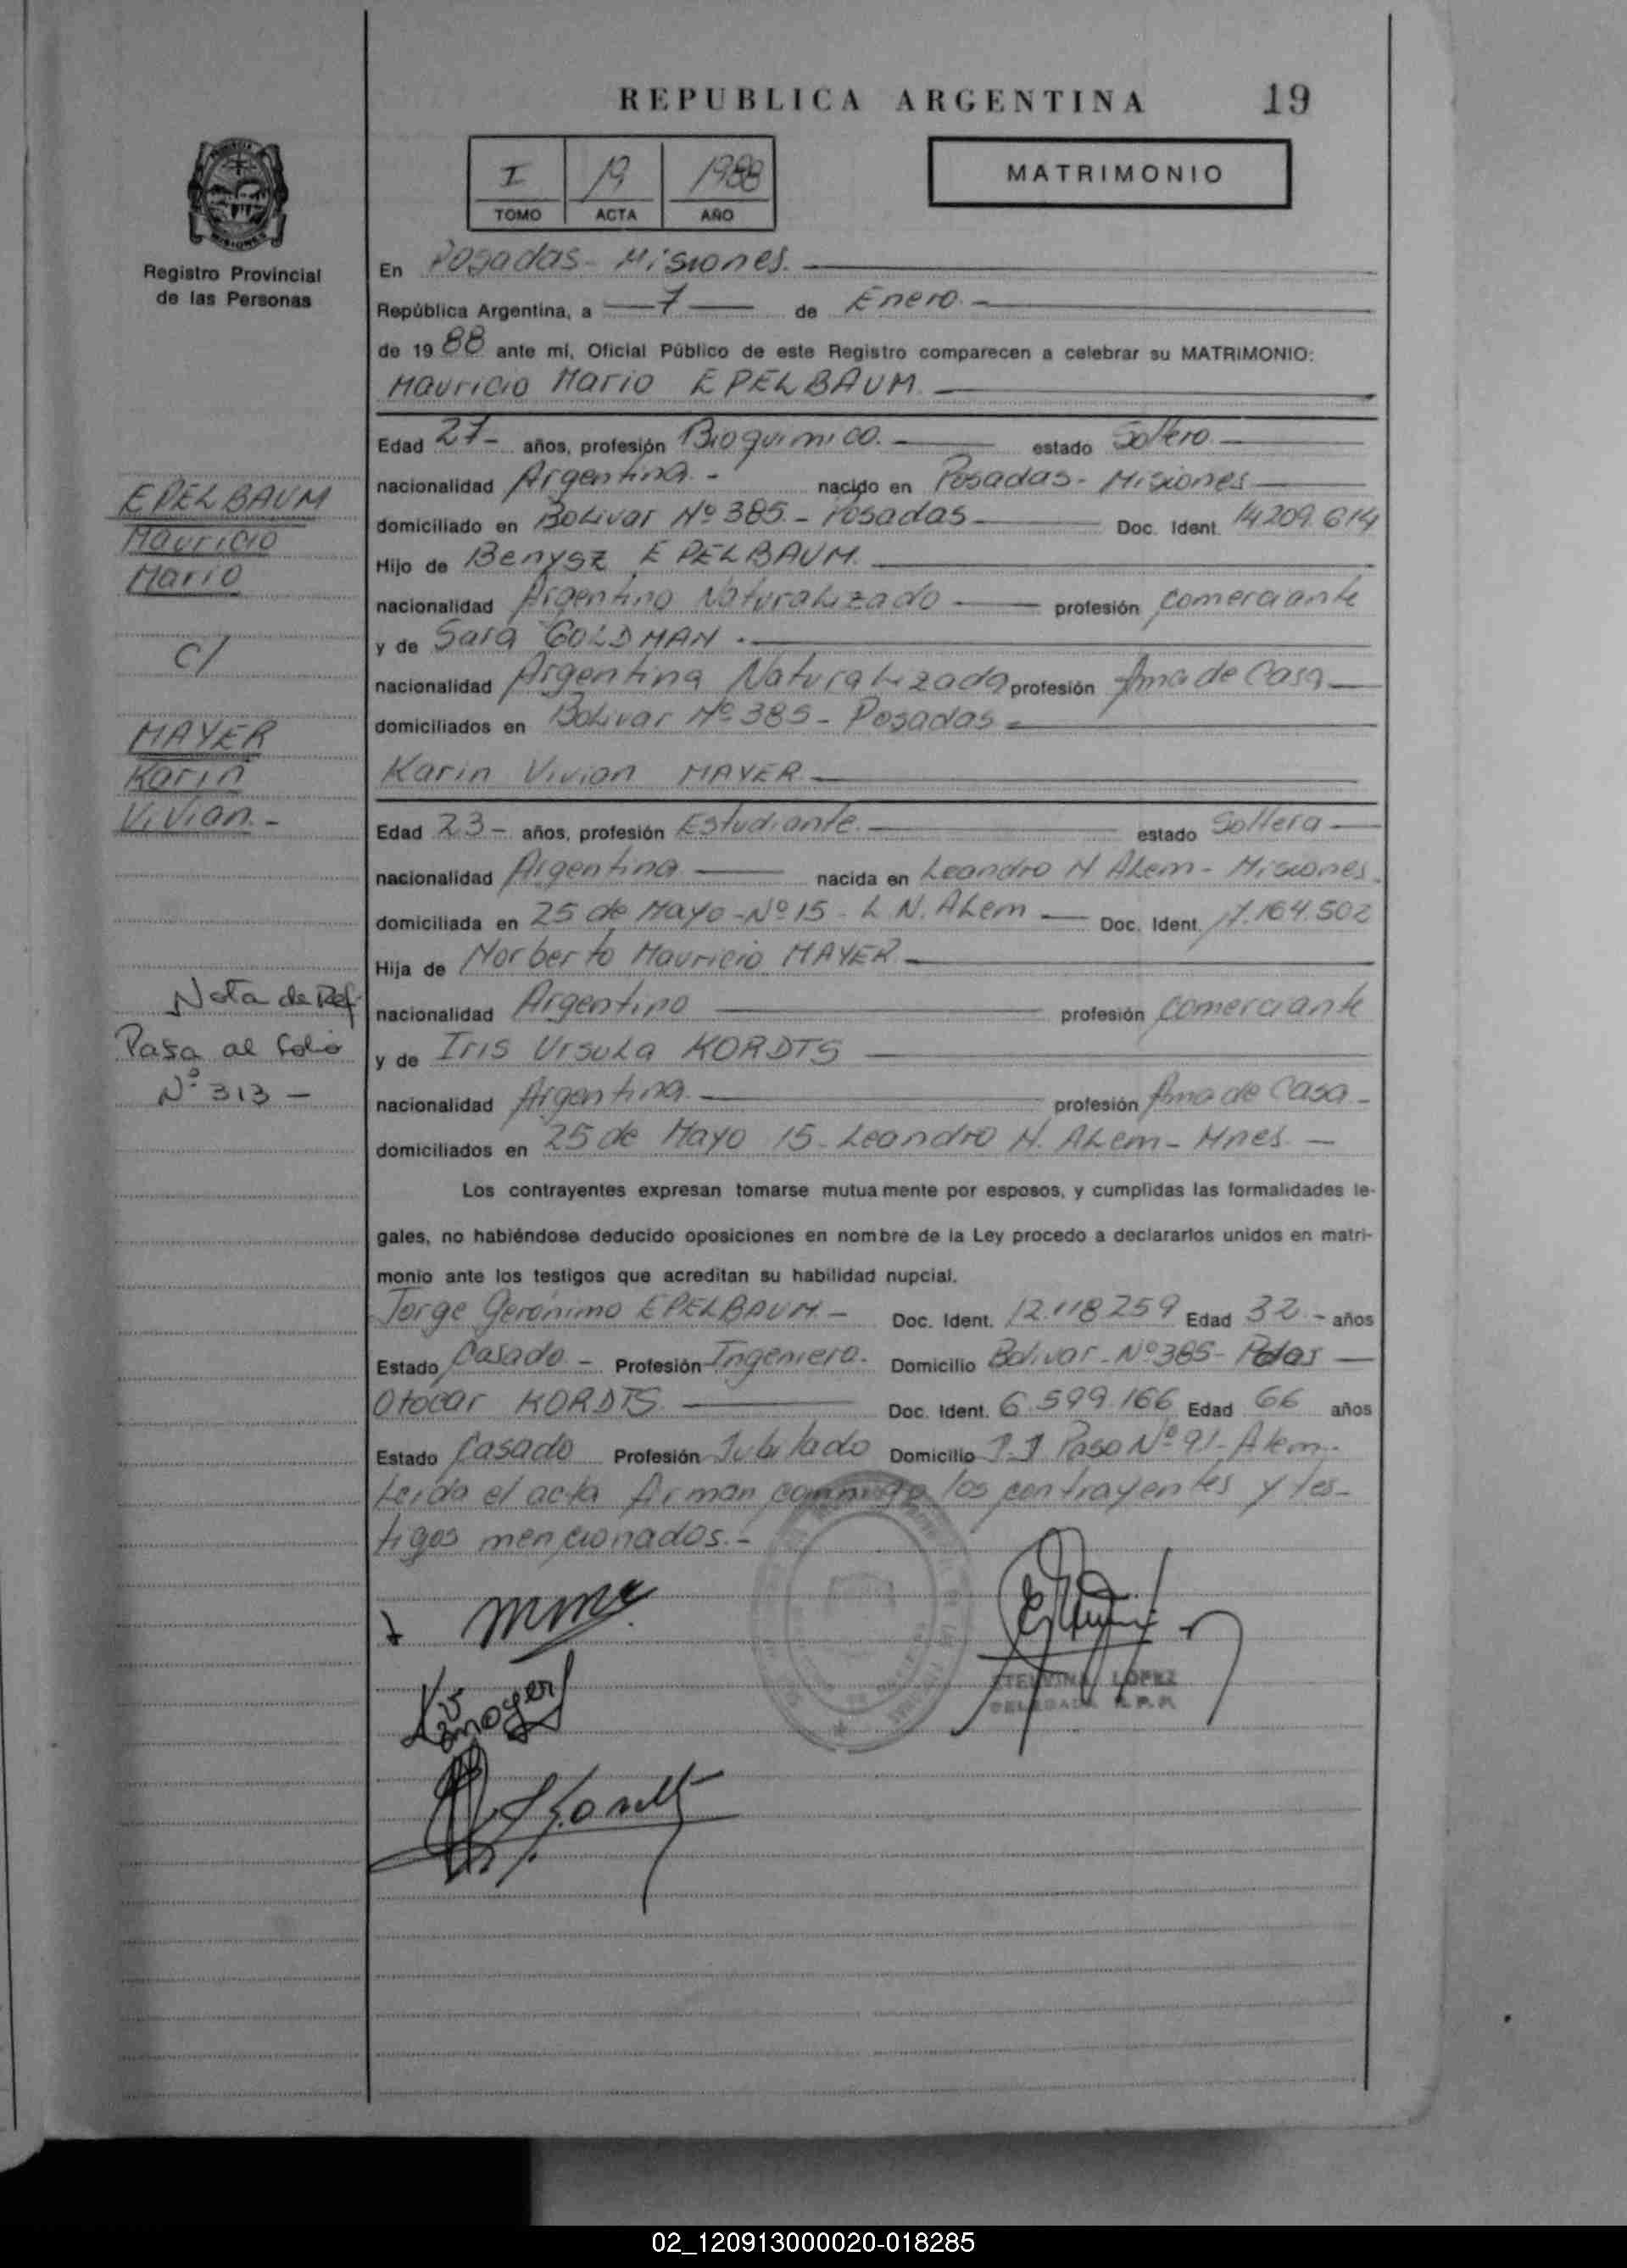 REPUBLICA ARGENTINA 19
I 19 1988
TOMO ACTA AÑO
MATRIMONIO
Registro Provincial
de las Personas
En Posadas - Misiones.
República Argentina, a 7 de Enero.
de 1988 ante mí, Oficial Público de este Registro comparecen a celebrar su MATRIMONIO:
Mauricio Mario EPELBAUM
Edad 27- años, profesión Bioquimico. estado Soltero.
nacionalidad Argentina. - nacido en Posadas - Misiones
domiciliado en Bolivar Nº 385.- Posadas Doc. Ident. 14.209.614
Hijo de Benysz EPELBAUM.
nacionalidad Argentino Naturalizado profesión comerciante
y de Sara GOLDMAN.
nacionalidad Argentina Naturalizada profesión Ama de Casa
domiciliados en Bolivar Nº 385 - Posadas
Karin Vivian MAYER
Edad 23- años, profesión Estudiante. estado Soltera
nacionalidad Argentina nacida en Leandro N Alem - Misiones.
domiciliada en 25 de Mayo - Nº 15 - L N. Alem Doc. Ident. 17.164.502
Hija de Norberto Mauricio MAYER
nacionalidad Argentino profesión comerciante
y de Iris Ursula KORDTS
nacionalidad Argentina. profesión Ama de Casa -
domiciliados en 25 de Mayo 15 - Leandro N. Alem - Mnes. -
Los contrayentes expresan tomarse mutuamente por esposos, y cumplidas las formalidades le-
gales, no habiéndose deducido oposiciones en nombre de la Ley procedo a declararlos unidos en matri-
monio ante los testigos que acreditan su habilidad nupcial.
Jorge Gerónimo EPELBAUM - Doc. Ident. 12.118.259 Edad 32 - años
Estado Casado - Profesión Ingeniero. Domicilio Bolivar - Nº 385 - Pdas
Otocar KORDTS Doc. Ident. 6.599.166 Edad 66 años
Estado Casado Profesión Jubilado Domicilio J.J Paso Nº 91 - Alem.
Leida el acta firman conmigo los contrayentes y tes-
tigos mencionados. -
EPELBAUM
Mauricio
Mario
c/
MAYER
Karin
Vivian. -
Nota de Ref.
Pasa al folio
Nº 313 -
LOPEZ
DELEGADA R.P.P.
02_120913000020-018285